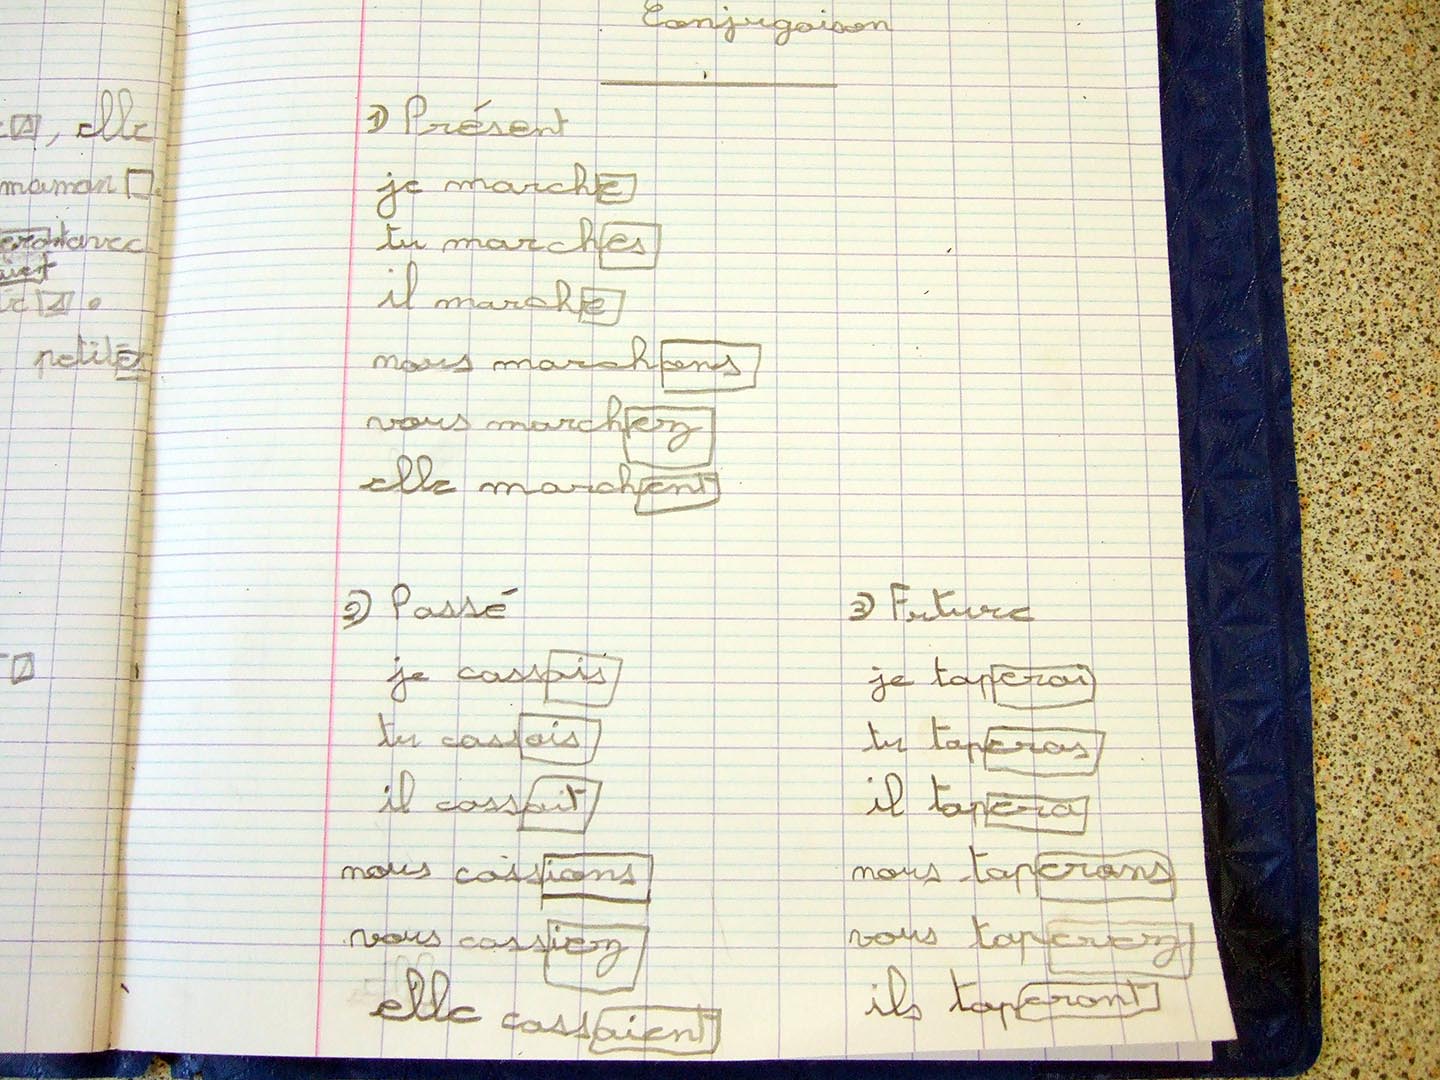 , elle
maman
avec
aient
petites
Conjugaison
1) Présent
je marche
tu marches
il marche
nous marchons
vous marchez
elle marchent
2) Passé
je cassais
tu cassais
il cassait
nous cassions
vous cassiez
elle cassaient
3) Future
je taperai
tu taperas
il tapera
nous taperons
vous taperez
ils taperont